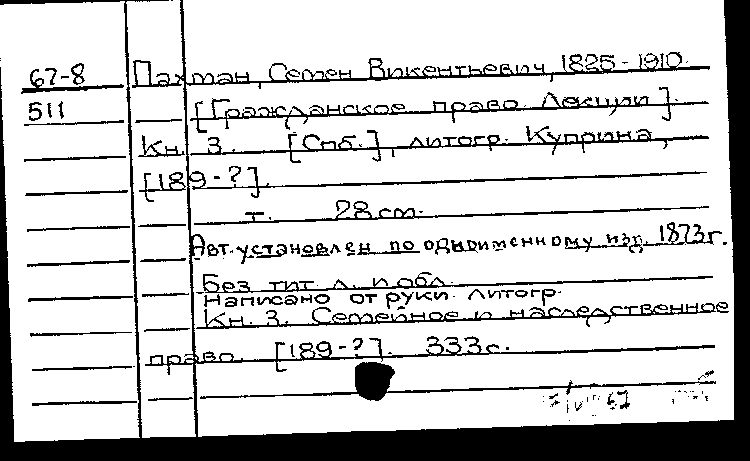 67-8 Пахман, Семен Викентьевич, 1825-1910.
511 [Гражданское право. Лекции].
Кн. 3. [Спб.], литогр. Куприна,
[189-?].
т. 28 см.
Авт. установлен по одноименному изд. 1873 г.
Без тит. л. и обл.
Написано от руки. Литогр.
Кн. 3. Семейное и наследственное
право. [189-?]. 333 с.